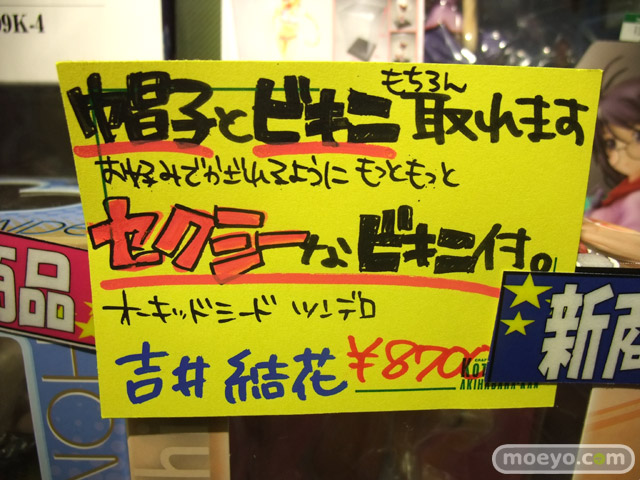 09K-4
もちろん
帽子とビキニ取れます
お好みでかざれるように もっともっと
セクシーなビキニ付。
オーキッドシード ツンデロ
吉井 結花 ¥8700
AKIHABARA
商品
新商
moeyo.com